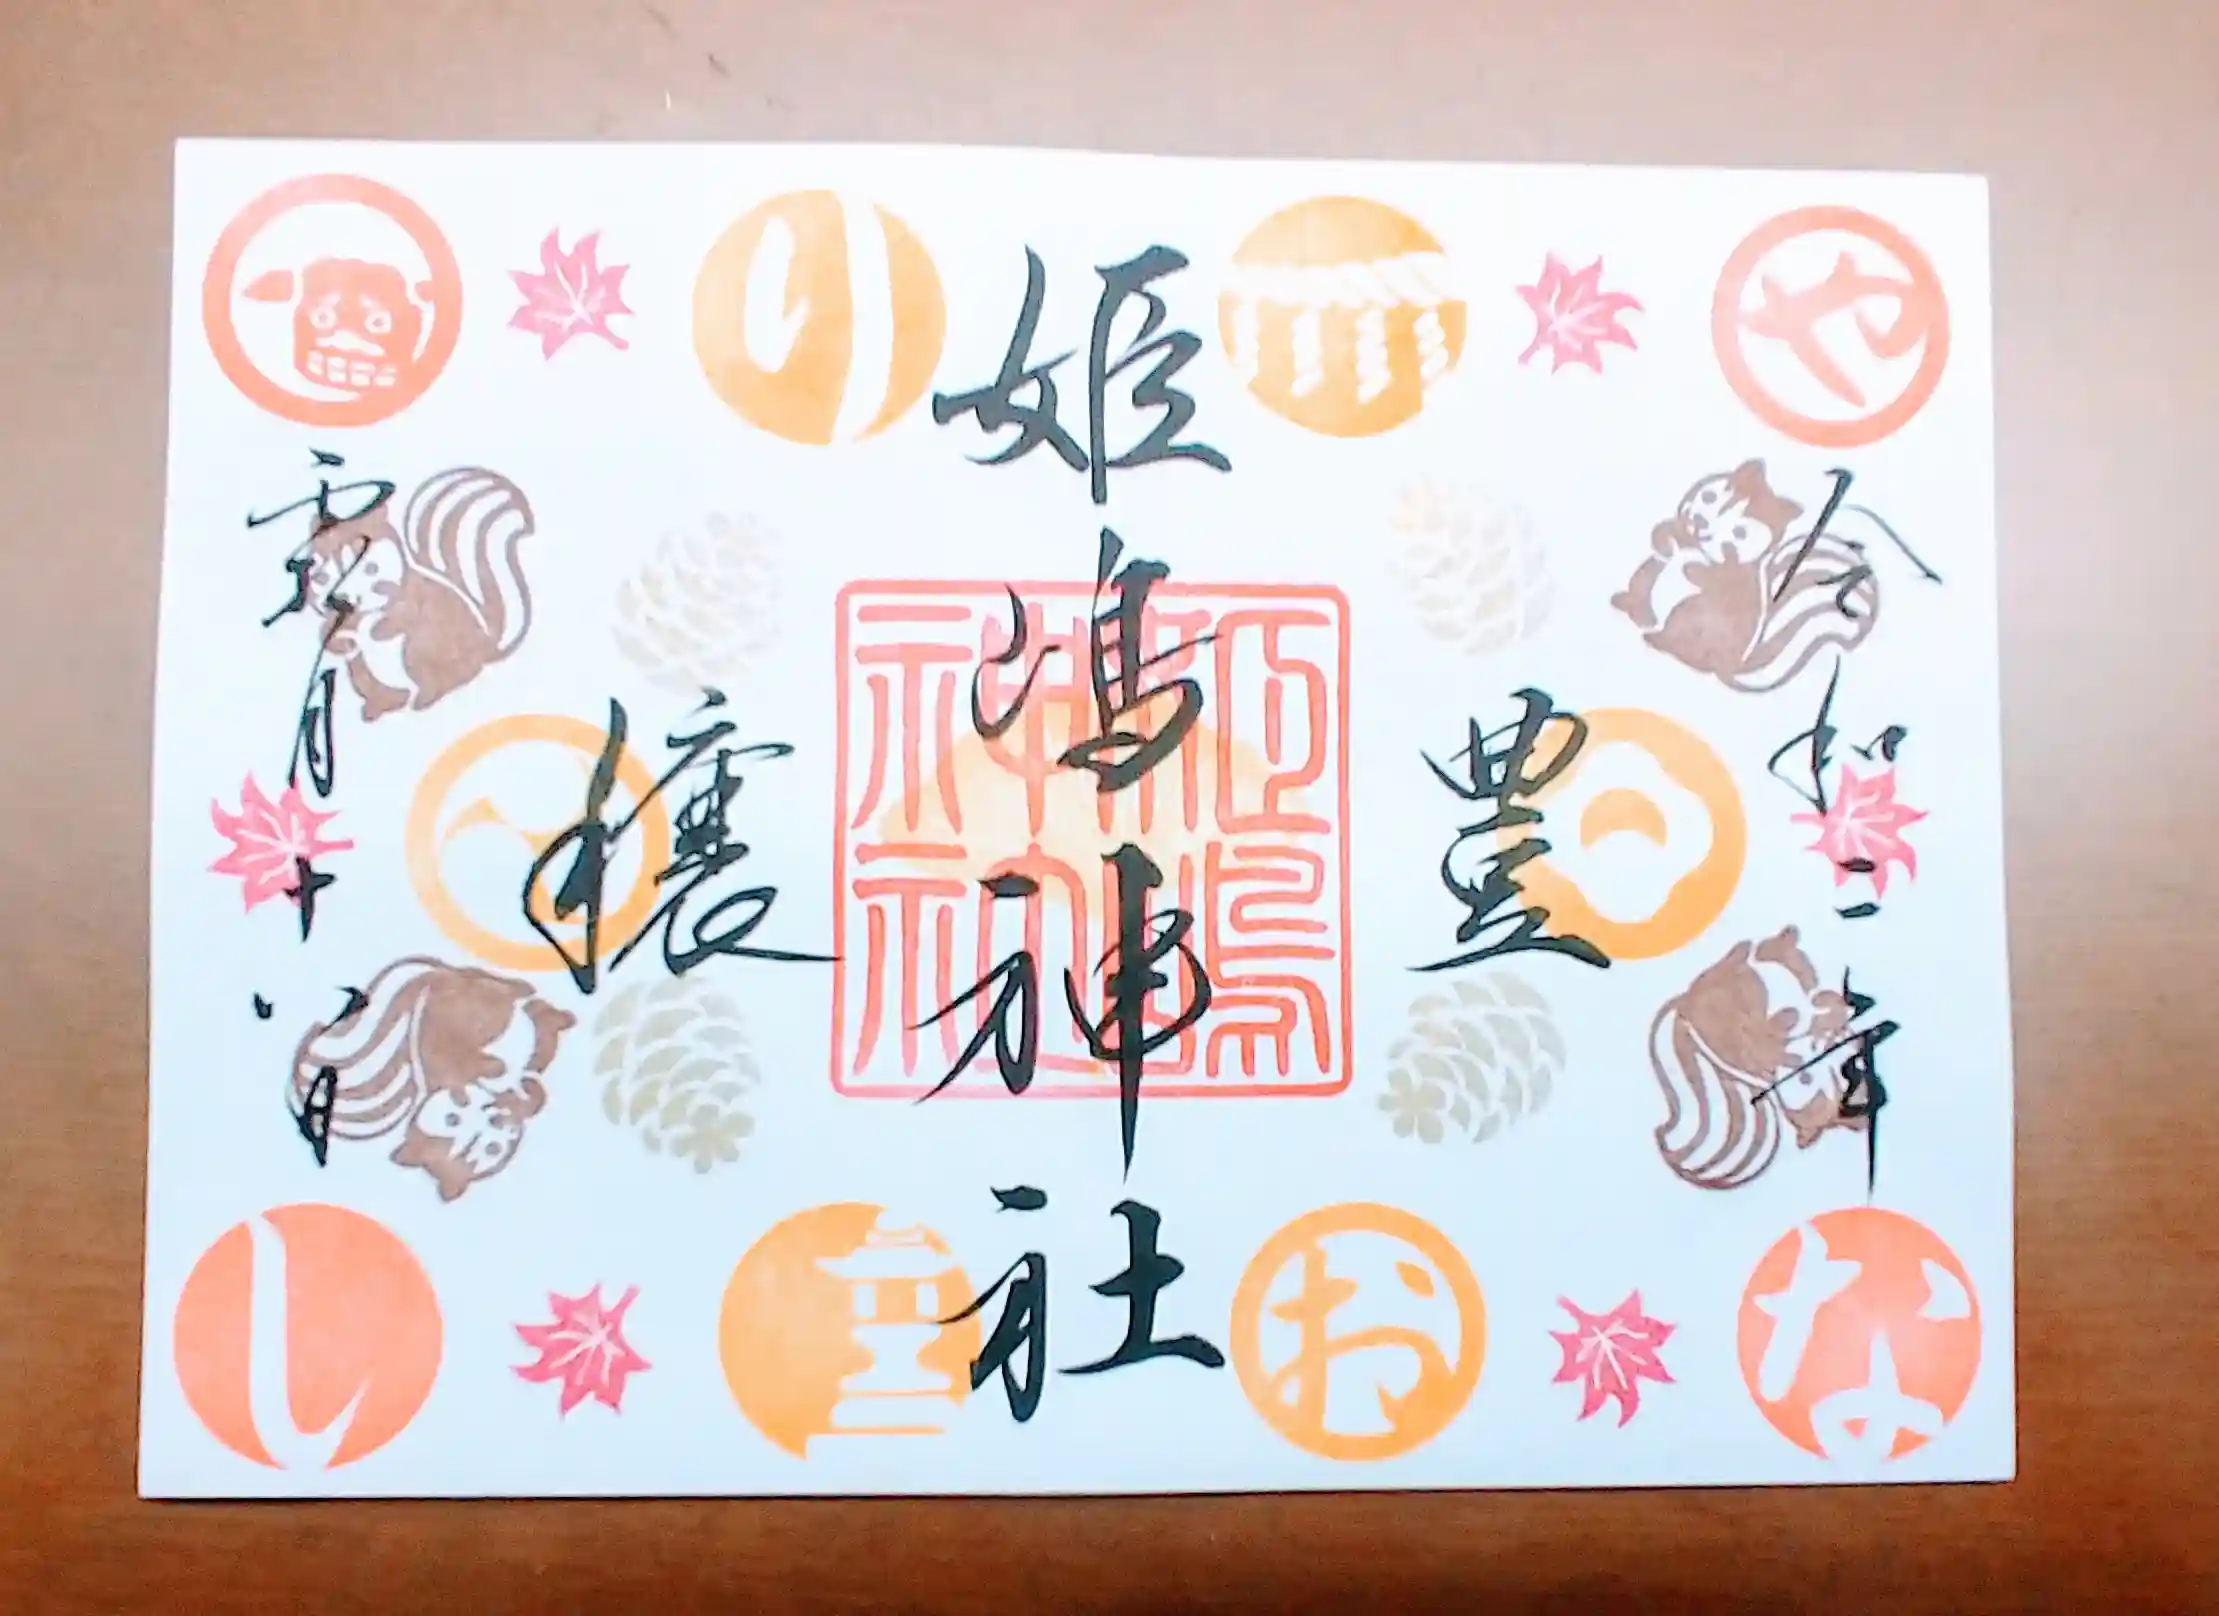 や
り
な
お
し
令和二年
豊
姫嶋神社
穣
霜月十八日
姫嶋
神社